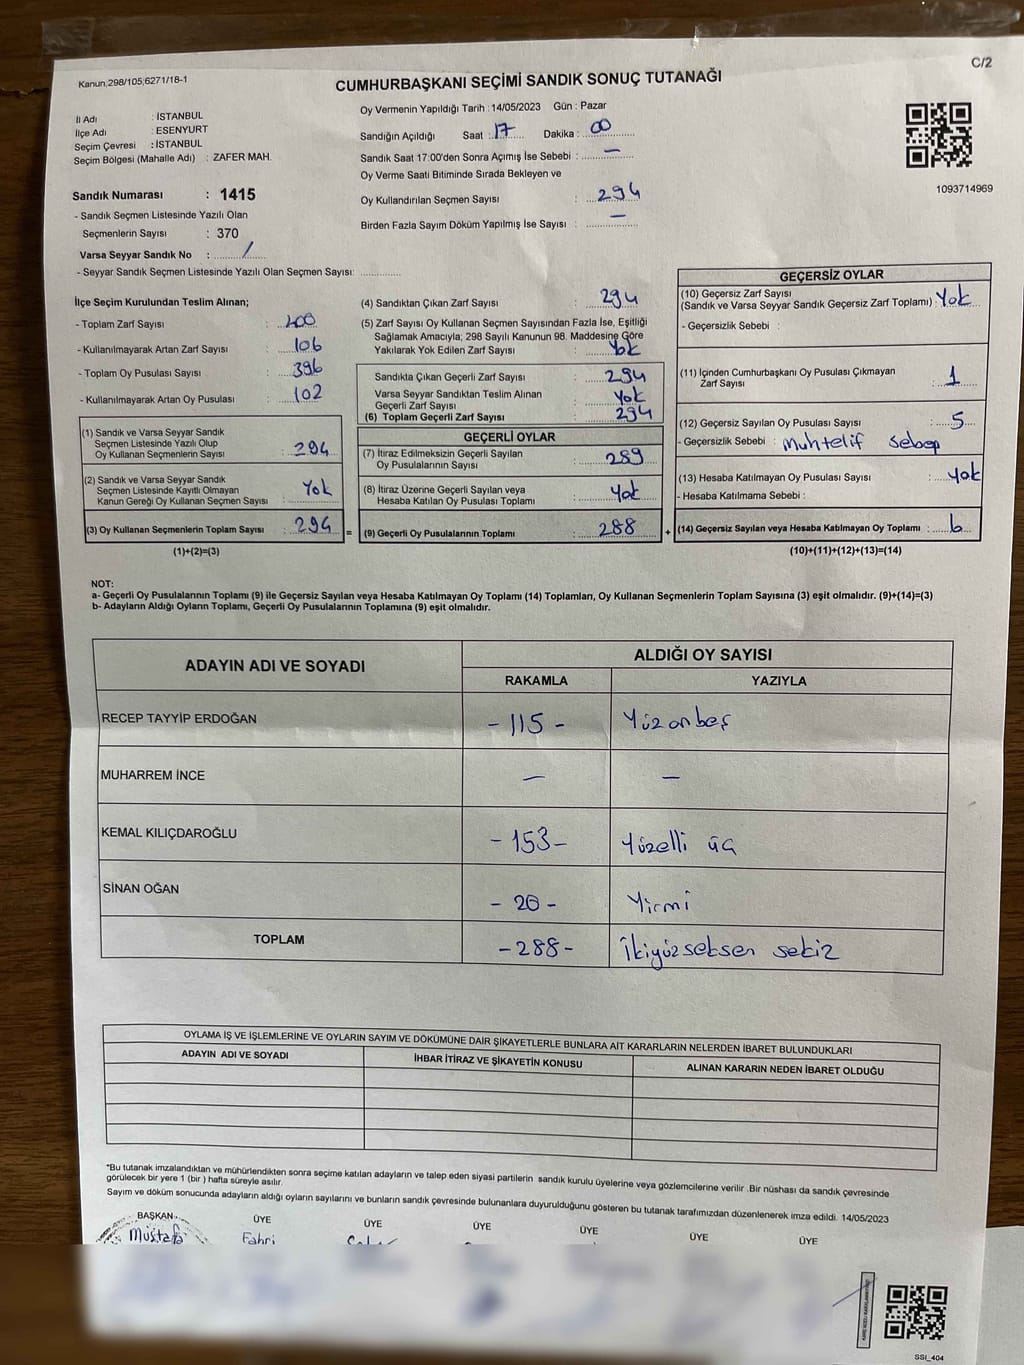 Kanun;298/105;6271/18-1
C/2
CUMHURBAŞKANI SEÇİMİ SANDIK SONUÇ TUTANAĞI
İl Adı : İSTANBUL
İlçe Adı : ESENYURT
Seçim Çevresi : İSTANBUL
Seçim Bölgesi (Mahalle Adı) : ZAFER MAH.
Sandık Numarası : 1415
- Sandık Seçmen Listesinde Yazılı Olan
Seçmenlerin Sayısı : 370
Varsa Seyyar Sandık No : /
- Seyyar Sandık Seçmen Listesinde Yazılı Olan Seçmen Sayısı: ............
Oy Vermenin Yapıldığı Tarih : 14/05/2023 Gün : Pazar
Sandığın Açıldığı Saat : 17 Dakika : 00
Sandık Saat 17:00'den Sonra Açımış İse Sebebi : —
Oy Verme Saati Bitiminde Sırada Bekleyen ve
Oy Kullandırılan Seçmen Sayısı : 294
Birden Fazla Sayım Döküm Yapılmış İse Sayısı : —
1093714969
İlçe Seçim Kurulundan Teslim Alınan;
- Toplam Zarf Sayısı : 400
- Kullanılmayarak Artan Zarf Sayısı : 106
- Toplam Oy Pusulası Sayısı : 396
- Kullanılmayarak Artan Oy Pusulası : 102
(1) Sandık ve Varsa Seyyar Sandık
Seçmen Listesinde Yazılı Olup
Oy Kullanan Seçmenlerin Sayısı : 294
(2) Sandık ve Varsa Seyyar Sandık
Seçmen Listesinde Kayıtlı Olmayan
Kanun Gereği Oy Kullanan Seçmen Sayısı : Yok
(3) Oy Kullanan Seçmenlerin Toplam Sayısı : 294 =
(1)+(2)=(3)
(4) Sandıktan Çıkan Zarf Sayısı : 294
(5) Zarf Sayısı Oy Kullanan Seçmen Sayısından Fazla İse, Eşitliği
Sağlamak Amacıyla; 298 Sayılı Kanunun 98. Maddesine Göre
Yakılarak Yok Edilen Zarf Sayısı : Yok
Sandıkta Çıkan Geçerli Zarf Sayısı : 294
Varsa Seyyar Sandıktan Teslim Alınan
Geçerli Zarf Sayısı : Yok
(6) Toplam Geçerli Zarf Sayısı : 294
GEÇERLİ OYLAR
(7) İtiraz Edilmeksizin Geçerli Sayılan
Oy Pusulalarının Sayısı : 289
(8) İtiraz Üzerine Geçerli Sayılan veya
Hesaba Katılan Oy Pusulası Toplamı : Yok
(9) Geçerli Oy Pusulalarının Toplamı : 288 +
GEÇERSİZ OYLAR
(10) Geçersiz Zarf Sayısı
(Sandık ve Varsa Seyyar Sandık Geçersiz Zarf Toplamı) : Yok
- Geçersizlik Sebebi :
(11) İçinden Cumhurbaşkanı Oy Pusulası Çıkmayan
Zarf Sayısı : 1
(12) Geçersiz Sayılan Oy Pusulası Sayısı : 5
- Geçersizlik Sebebi : Muhtelif sebep
(13) Hesaba Katılmayan Oy Pusulası Sayısı : Yok
- Hesaba Katılmama Sebebi :
(14) Geçersiz Sayılan veya Hesaba Katılmayan Oy Toplamı : 6
(10)+(11)+(12)+(13)=(14)
NOT:
a- Geçerli Oy Pusulalarının Toplamı (9) ile Geçersiz Sayılan veya Hesaba Katılmayan Oy Toplamı (14) Toplamları, Oy Kullanan Seçmenlerin Toplam Sayısına (3) eşit olmalıdır. (9)+(14)=(3)
b- Adayların Aldığı Oyların Toplamı, Geçerli Oy Pusulalarının Toplamına (9) eşit olmalıdır.
ADAYIN ADI VE SOYADI
ALDIĞI OY SAYISI
RAKAMLA YAZIYLA
RECEP TAYYİP ERDOĞAN - 115 - Yüzonbeş
MUHARREM İNCE — —
KEMAL KILIÇDAROĞLU - 153 - Yüzelli üç
SİNAN OĞAN - 20 - Yirmi
TOPLAM - 288 - İkiyüzseksen sekiz
OYLAMA İŞ VE İŞLEMLERİNE VE OYLARIN SAYIM VE DÖKÜMÜNE DAİR ŞİKAYETLERLE BUNLARA AİT KARARLARIN NELERDEN İBARET BULUNDUKLARI
ADAYIN ADI VE SOYADI İHBAR İTİRAZ VE ŞİKAYETİN KONUSU ALINAN KARARIN NEDEN İBARET OLDUĞU
*Bu tutanak imzalandıktan ve mühürlendikten sonra seçime katılan adayların ve talep eden siyasi partilerin sandık kurulu üyelerine veya gözlemcilerine verilir .Bir nüshası da sandık çevresinde
görülecek bir yere 1 (bir ) hafta süreyle asılır.
Sayım ve döküm sonucunda adayların aldığı oyların sayılarını ve bunların sandık çevresinde bulunanlara duyurulduğunu gösteren bu tutanak tarafımızdan düzenlenerek imza edildi. 14/05/2023
BAŞKAN ÜYE ÜYE ÜYE ÜYE ÜYE ÜYE
Mustafa Fahri
SSI_404